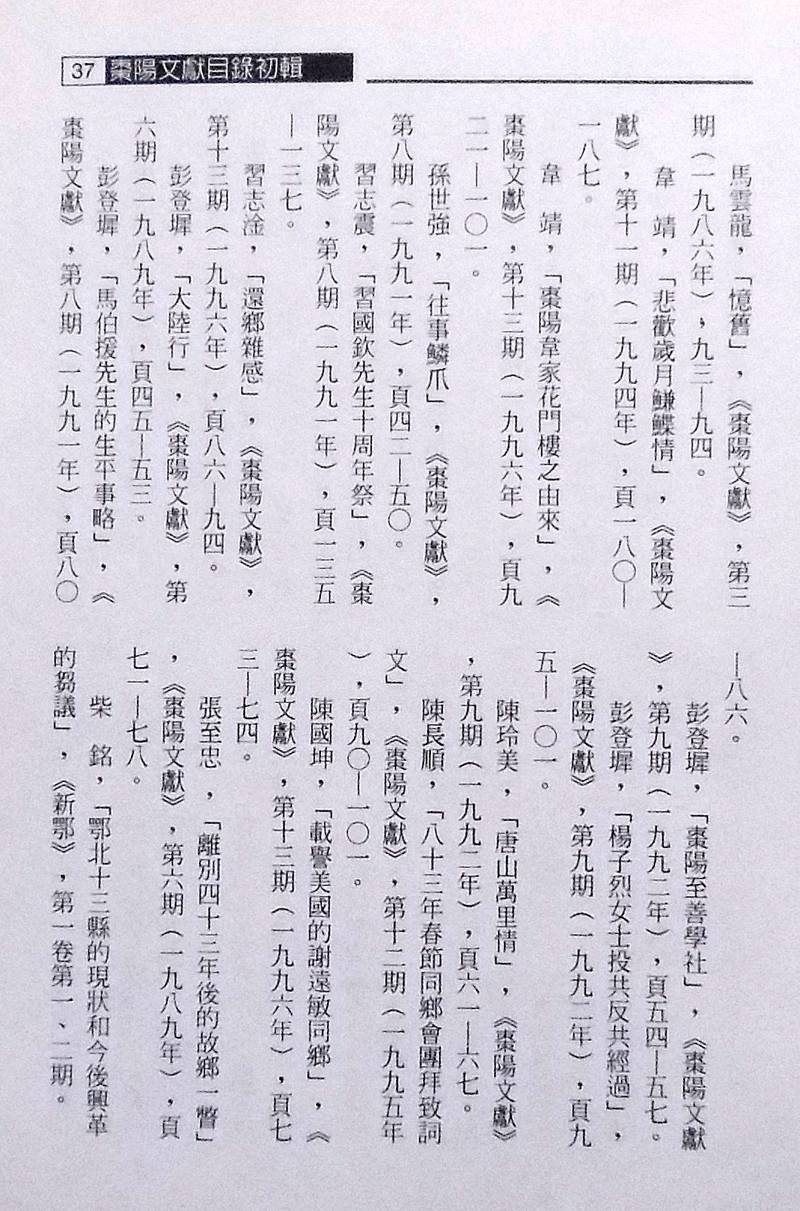 37 棗陽文獻目錄初輯
馬雲龍，「憶舊」，《棗陽文獻》，第三
期（一九八六年），九三—九四。
韋　靖，「悲歡歲月鰜鰈情」，《棗陽文
獻》，第十一期（一九九四年），頁一八〇—
一八七。
韋　靖，「棗陽韋家花門樓之由來」，《
棗陽文獻》，第十三期（一九九六年），頁九
二一—一〇一。
孫世強，「往事鱗爪」，《棗陽文獻》，
第八期（一九九一年），頁四二—五〇。
習志震，「習國欽先生十周年祭」，《棗
陽文獻》，第八期（一九九一年），頁一三五
—一三七。
習志淦，「還鄉雜感」，《棗陽文獻》，
第十三期（一九九六年），頁八六—九四。
彭登墀，「大陸行」，《棗陽文獻》，第
六期（一九八九年），頁四五—五三。
彭登墀，「馬伯援先生的生平事略」，《
棗陽文獻》，第八期（一九九一年），頁八〇
—八六。
彭登墀，「棗陽至善學社」，《棗陽文獻
》，第九期（一九九二年），頁五四—五七。
彭登墀，「楊子烈女士投共反共經過」，
《棗陽文獻》，第九期（一九九二年），頁九
五—一〇一。
陳玲美，「唐山萬里情」，《棗陽文獻》
，第九期（一九九二年），頁六一—六七。
陳長順，「八十三年春節同鄉會團拜致詞
文」，《棗陽文獻》，第十二期（一九九五年
），頁九〇—一〇一。
陳國坤，「載譽美國的謝遠敏同鄉」，《
棗陽文獻》，第十三期（一九九六年），頁七
三—七四。
張至忠，「離別四十三年後的故鄉一瞥」
，《棗陽文獻》，第六期（一九八九年），頁
七一—七八。
柴　銘，「鄂北十三縣的現狀和今後興革
的芻議」，《新鄂》，第一卷第一、二期。